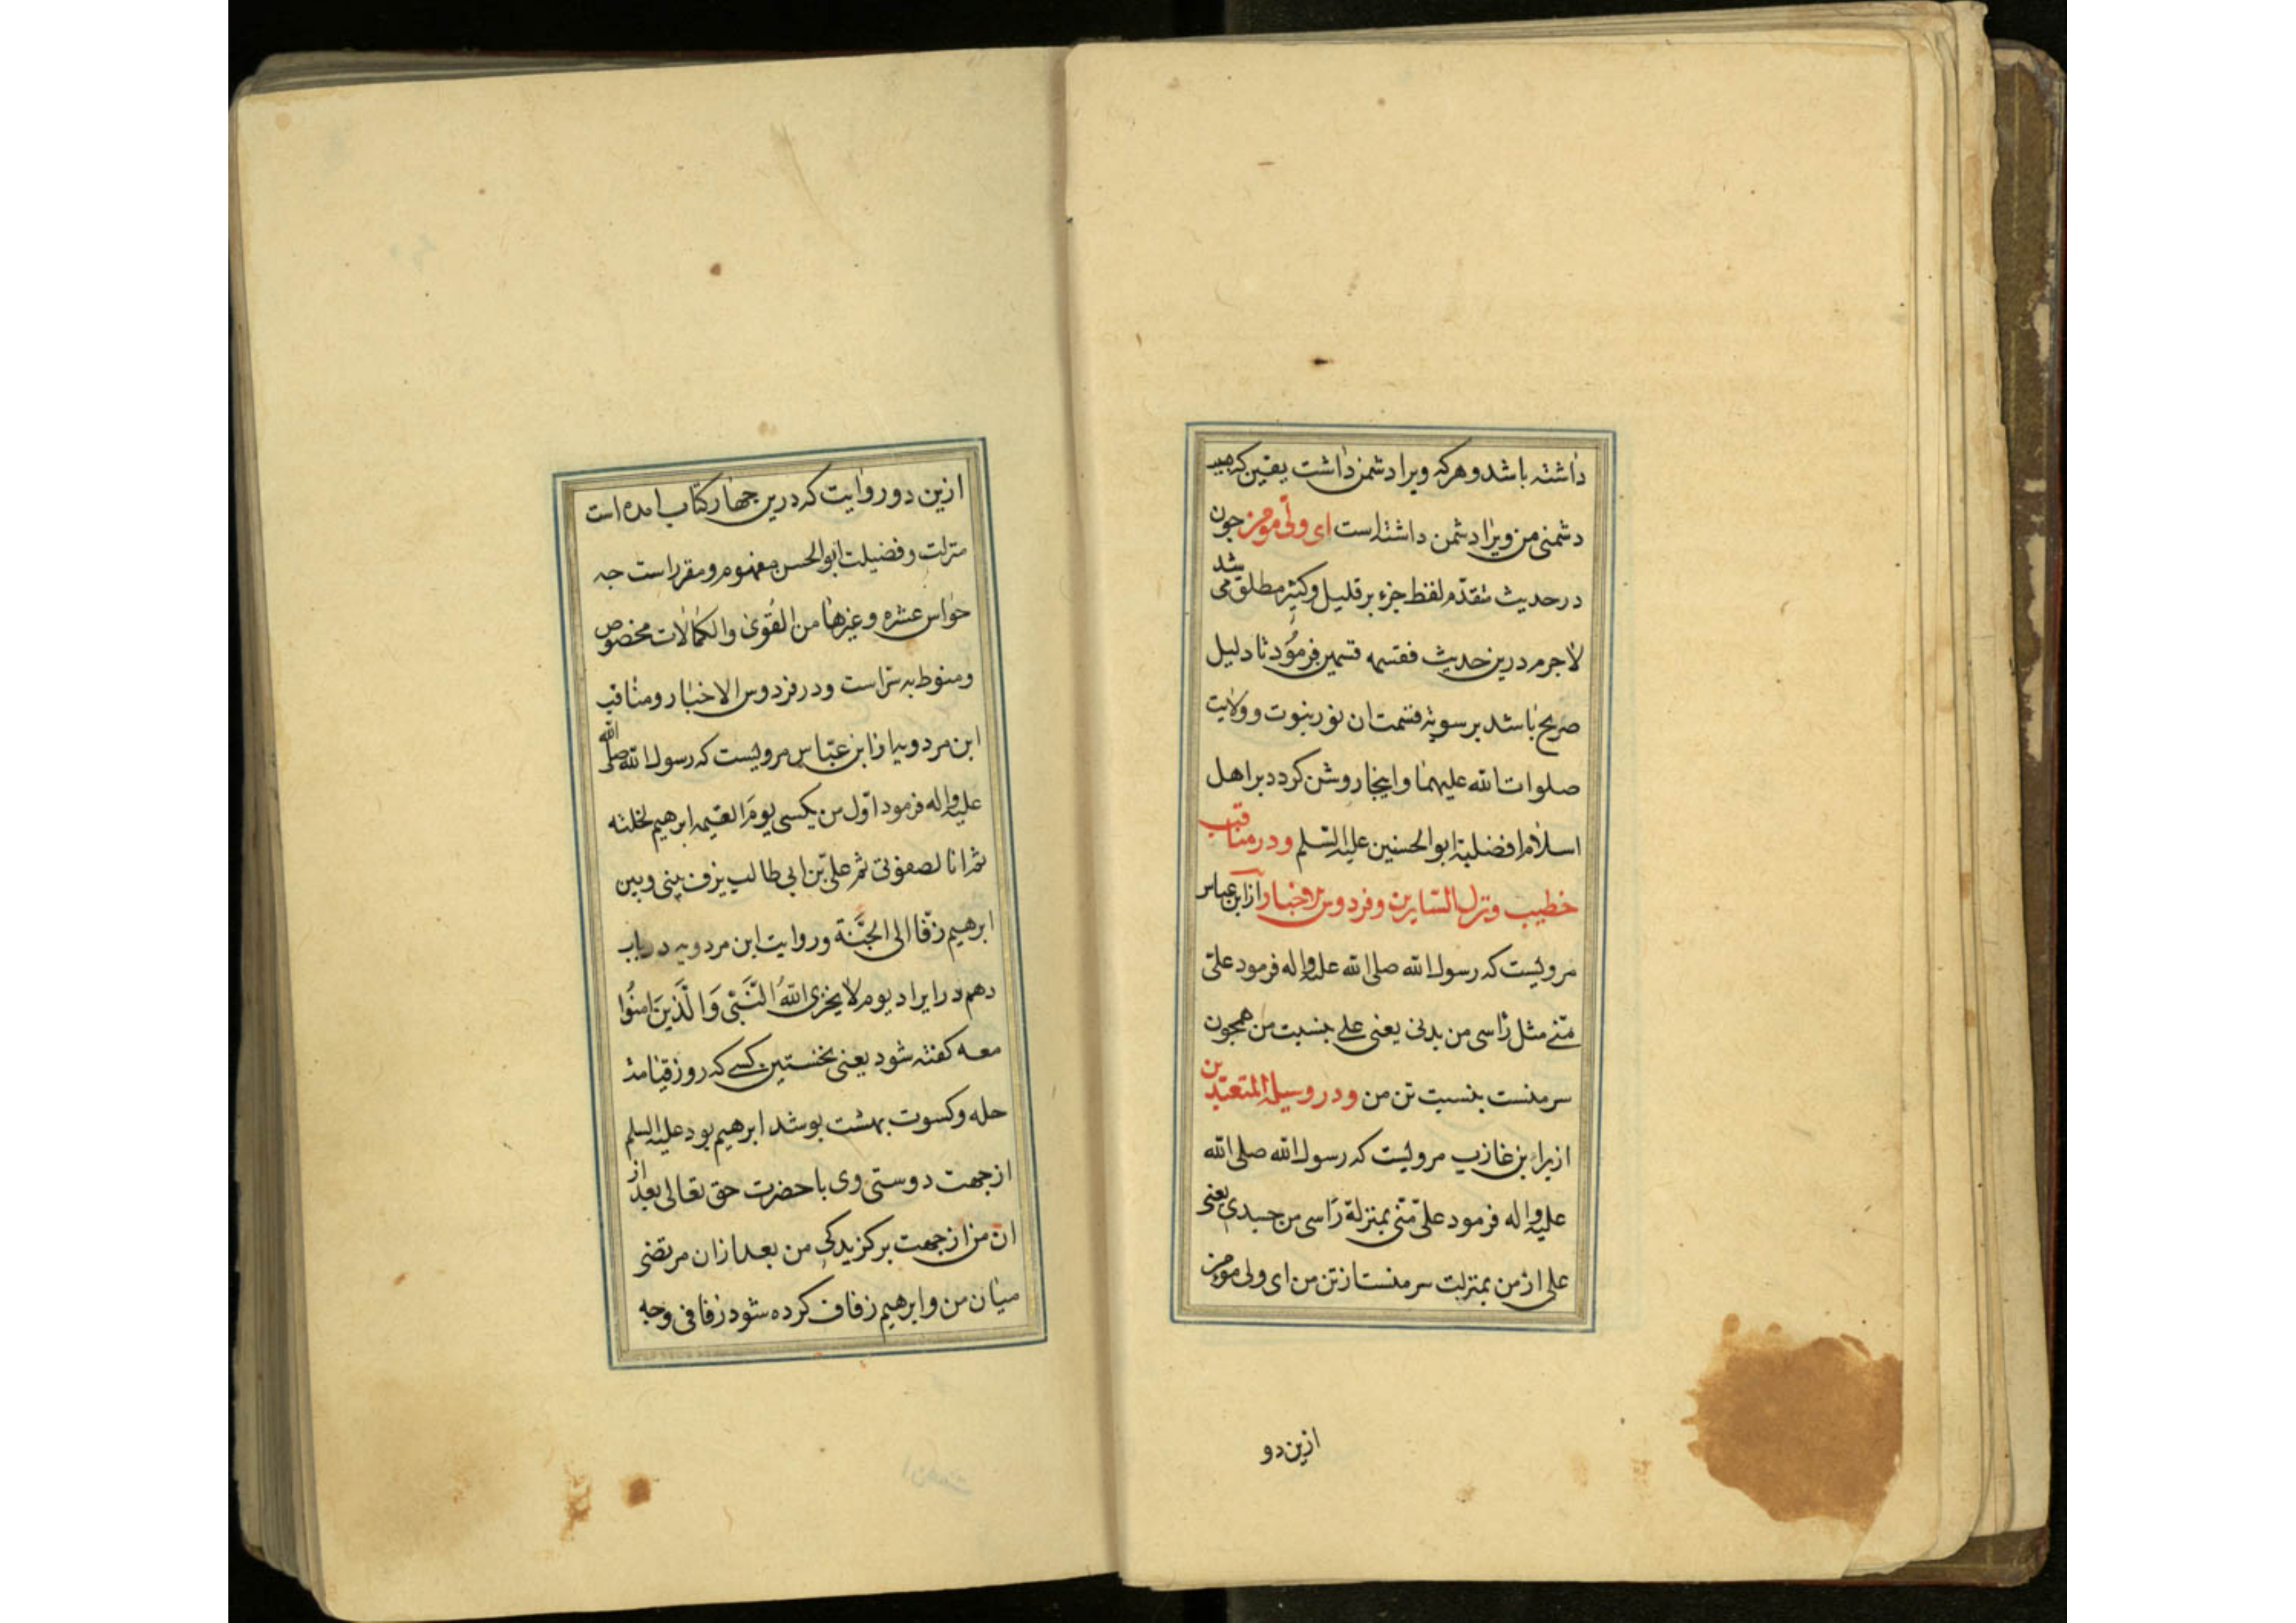 داشته باشد وهر که ویرا دشمن داشت یقین که بسبب
دشمنی من ویرا دشمن داشته است ای ولی مومن جون
در حدیث متقدّم لفظ جزء بر قلیل وکثیر مطلق می شد
لاجرم درین حدیث فقسمه قسمین فرمود تا دلیل
صریح باشد بر سویة قسمت ان نور نبوت و ولایت
صلوات الله علیهما و اینجا روشن کردد بر اهل
اسلام افضلیة ابو الحسنین علیه السّلم ودر مناقب
خطیب و نزل السّایرین و فردوس الاخبار از ابن عباس
مرویست که رسول الله صلی الله علیه واله فرمود علیّ
منّی مثل رأسی من بدنی یعنی علی بنسبت من همجون
سر منست بنسبت تن من ودر وسیلة المتعبّدین
از برا بن عازب مرویست که رسول الله صلی الله
علیه واله فرمود علیّ منّی بمنزلة رأسی من جسدی یعنی
علی از من بمنزلت سر منست از تن من ای ولی مومن
ازین دو
ازین دو روایت که درین جهار کتاب امده است
منزلت و فضیلت ابو الحسن مفهوم و مقرر است جه
حواس عشره وغیرها من القُوی والکمالات مخصوص
ومنوط به سر است ودر فردوس الاخبار ومناقب
ابن مردویه از ابن عبّاس مرویست که رسول الله صلی الله
علیه واله فرمود اوّل من یکسی یومَ القیمه ابرهیم لخلته
ثم انا لصفوتی ثم علیّ بن ابی طالب یزف بینی وبین
ابرهیم زفّا الی الجَنّة و روایت ابن مردویه در باب
دهم در ایراد یوم لا یخزی اللّهُ النَّبیَّ وَالَّذینَ امنُوا
معه کفته شود یعنی نخستین کسی که روز قیامت
حله وکسوت بهشت بوشد ابرهیم بود علیه السلم
از جهت دوستی وی با حضرت حق تعالی بعد از
ان من از جهت برکزیدکی من بعد از ان مرتضی
میان من و ابرهیم زفاف کرده شود زفافی وجه